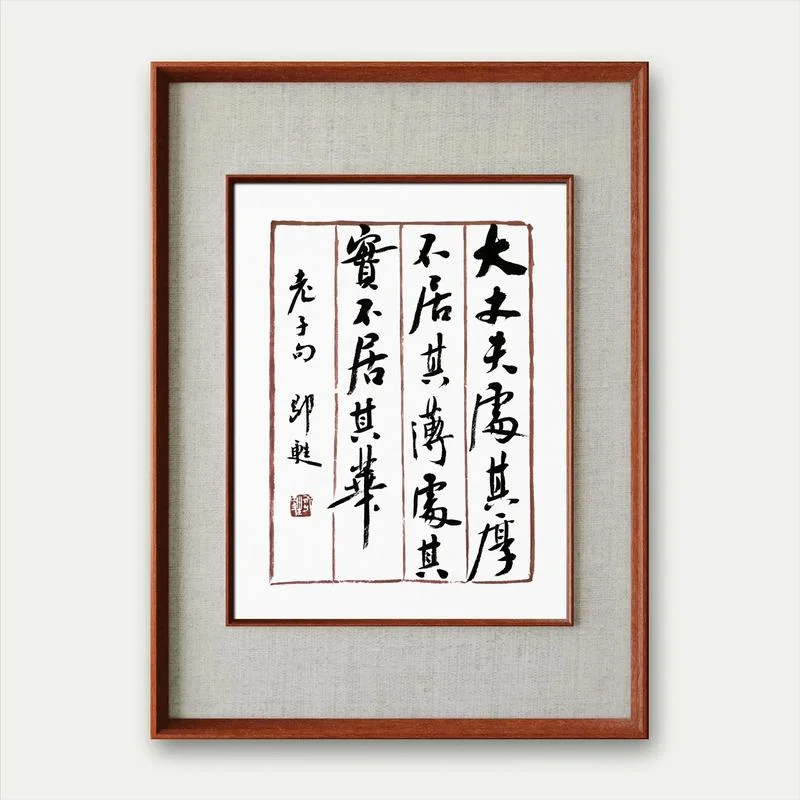 大丈夫處其厚
不居其薄處其
實不居其華
老子句